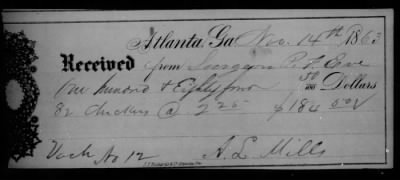 Atlanta, Ga. Nov. 14th 1863
Received from Surgeon P. F. Eve
One hundred & Eighty four 50/100 Dollars
82 chickens @ 2 25 $184.50
Vouch No 12 A. L. Mills